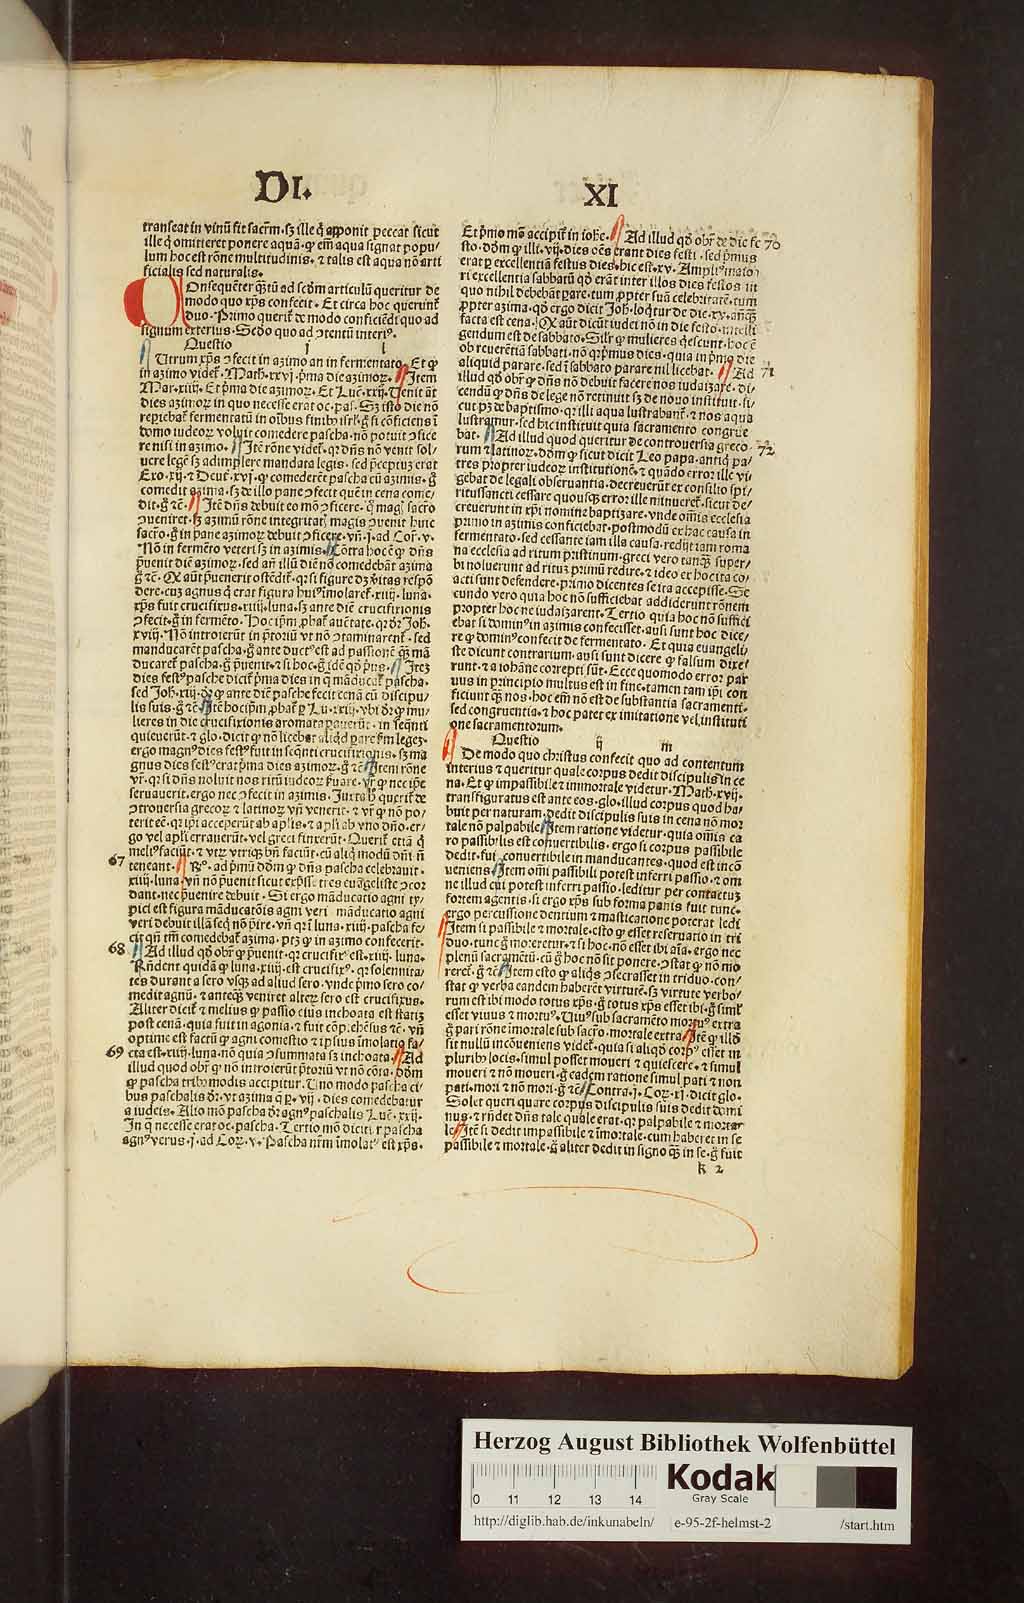 DI.
XI
transeat in vinũ fit sacr̃m. sꝫ ille q̃ apponit peccat sicut
ille q̃ omitteret ponere aquã. qꝛ em̃ aqua signat popu/
lum hoc est rõne multitudinis. ⁊ talis est aqua nõ arti
ficialis sed naturalis.
Onsequẽter q̃tũ ad scḋm articulũ queritur de
modo quo xp̃s confecit. Et circa hoc querunt̃
duo. Primo querit̃ de modo conficiẽdi quo ad
signum exterius. Scḋo quo ad ꝯtentũ interi⁹.
Questio i l
Utrum xp̃s ꝯfecit in azimo an in fermentato. Et qꝙ
in azimo videt̃. Math. xxvj. p̃ma die azimoꝝ. Item
Mar. xiiij. Et p̃ma die azimoꝝ. Et Luc̃. xxij. Venit aũt
dies azimoꝝ in quo necesse erat oc. pas. Sꝫ isto die nõ
domo iudeoꝝ voluit comedere pascha. nõ potuit ꝯfice
re nisi in azimo. Itẽ rõne videt̃. qꝛ dñs nõ venit sol/
uere legẽ sꝫ adimplere mandata legis. sed p̃ceptũ erat
Exo. xij. ⁊ Deut̃. xvj. qꝙ comederẽt pascha cũ azimis. g̃
comedit azima. sꝫ de illo pane ꝯfecit quẽ in cena come/
dit. g̃ ⁊c̃. Itẽ dñs debuit eo mõ ꝯficere. q̃ mag̃ sacr̃o
ꝯueniret. sꝫ azimũ rõne integritat̃ magis ꝯuenit huic
sacr̃o. g̃ in pane azimoꝝ debuit ꝯficere. vñ. j. ad Cor̃. v.
Nõ in fermẽto veteri sꝫ in azimis. Cõtra hoc ẽ qꝙ dñs
p̃uenit diẽ azimoꝝ. sed añ illũ diẽ nõ comedebãt azima
dere. cuȝ agnus q̃ erat figura hui⁹ imolaret̃. xiiij. luna.
xp̃s fuit crucifixus. xiiij. luna. sꝫ ante diẽ crucifixionis
ꝯfecit. g̃ in fermẽto. Hoc ip̃m ꝓbat̃ auc̃tate. qꝛ dr̃ Joh̃.
xviij. Nõ introierũt in p̃toriũ vt nõ ꝯtaminarent̃. sed
manducarẽt pascha. g̃ ante duct⁹ est ad passionẽ q̃ȝ mã
ducaret̃ pascha. g̃ p̃uenit. ⁊ si hoc. g̃ idẽ qḋ p̃us. Iteȝ
dies fest⁹ pasche dicit̃ p̃ma dies in q̃ mãducat̃ pascha.
sed Joh̃. xiij. dr̃ qꝙ ante diẽ pasche fecit cenã cũ discipu/
lis suis. g̃ ⁊c̃. Itẽ hoc ip̃m ꝓbat̃ ꝑ Lu. xxiij. vbi dr̃ qꝙ mu/
lieres in die crucifixionis aromata pauerũt. in seq̃nti
quieuerũt. ⁊ glo. dicit qꝙ nõ licebat aliqḋ parẽ ẽm legeȝ.
ergo magn⁹ dies fest⁹ fuit in seq̃nti crucifixionis. sꝫ ma
gnus dies fest⁹ erat p̃ma dies azimoꝝ. g̃ ⁊c̃. Itẽ rõne
vr̃. qꝛ si dñs noluit nos ritũ iudeoꝝ ẽuare. vr̃ qꝙ nec ip̃e
seruauerit. ergo nec ꝯfecit in azimis. Iuxta h̃ querit̃ de
ꝯtrouersia grecoꝝ ⁊ latinoꝝ vñ venerit. ⁊ vr̃ qꝙ nõ po/
terit eẽ. qꝛ ip̃i acceperũt ab apl̃is. ⁊ apl̃i ab vno dño. er/
go vel apl̃i errauerũt. vel greci finxerũt. Querit̃ etiã q̃
meli⁹ faciũt. ⁊ vtꝝ vtriqȝ bñ faciũt. cũ aliq̃ modũ dñi ñ
67 teneant. Rº. ad p̃mũ dḋm qꝙ dñs pascha celebrauit.
xiiij. luna. vñ nõ p̃uenit sicut exp̃sse tres euãgeliste ꝯcor
dant. nec p̃uenire debuit. Si ergo mãducatio agni ty/
pici est figura mãducatõis agni veri mãducatio agni
veri debuit illã seq̃ nõ p̃ire. vñ qꝛ ĩ luna. xiiij. pascha fe/
cit qñ tm̃ comedebat̃ azima. ptꝫ qꝙ in azimo confecerit.
68 Ad illud qḋ obr̃ qꝙ p̃uenit. qꝛ crucifix⁹ est. xiij. luna.
Rñdent quidã qꝙ luna. xiiij. est crucifix⁹. qꝛ solennita/
tes durant a sero vsqȝ ad aliud sero. vnde p̃mo sero co/
medit agnũ. ⁊ anteq̃ȝ veniret alteꝝ sero est crucifixus.
Aliter dicit̃ ⁊ melius qꝙ passio eius inchoata est statiȝ
post cenã. quia fuit in agonia. ⁊ fuit cõp̃chẽsus ⁊c̃. vñ
optime est factũ qꝙ agni comestio ⁊ ipsius ĩmolatio fa/
69 cta est. xiiij. luna. nõ quia ꝯsummata sꝫ inchoata. Ad
illud quod obr̃ qꝙ nõ introierũt p̃toriũ vt nõ cõta. dḋm
qꝙ pascha trib⁹ modis accipitur. Uno modo pascha ci/
bus paschalis dr̃. vt azima q̃ ꝑ. vij. dies comedebatur
a iudeis. Alio mõ pascha dr̃ agn⁹ paschalis Luc̃. xxij.
In q̃ necesse erat oc. pascha. Tertio mõ dicitur pascha
agn⁹ verus. j. ad Coꝝ. v. Pascha nr̃m imolat⁹ est xp̃s.
Et p̃mo mõ accipit̃ in iohe. Ad illud qḋ obr̃ de die fe 70
sto. dḋm qꝙ illi. vij. dies oẽs erant dies festi. sed p̃mus
erat ꝑ excellentiã festus dies. hic est. xv. Ampli⁹ maio
ri excellentia sabbatũ qḋ erãt inter illos dies festos in
quo nihil debebãt pare. tum ꝓpter suã celebritatẽ. tum
ꝓpter azima. qḋ ergo dicit Joh̃. loq̃tur de die. xv. anq̃ȝ
facta est cena. Qḋ aũt dicũt iudei nõ in die festo. intelli
gendum est de sabbato. Silr̃ qꝙ mulieres q̃escunt. hoc ẽ
ob reuerẽtiã sabbati. nõ qꝛ p̃mus dies. quia in p̃mo die
aliquid parare. sed ĩ sabbato parare nil licebat. Ad 71
illud qḋ obr̃ qꝙ dñs nõ debuit facere nos iudaizare. di/
cendũ qꝙ dñs de lege nõ retinuit sꝫ de nouo instituit. si/
cut pꝫ de baptismo. qꝛ illi aqua lustrabant̃. ⁊ nos aqua
lustramur. sed hic instituit quia sacramento congrue
bat. Ad illud quod queritur de controuersia greco/ 72
rum ⁊ latinoꝝ. dḋm qꝙ sicut dicit Leo papa. antiq̃ pa/
tres propter iudeoꝝ institutionẽ. ⁊ quãdo error ille vi/
gebat de legali obseruantia. decreuerũt ex consilio sp̃i/
ritussancti cessare quousqȝ error ille minueret̃. sicut de/
creuerunt in xp̃i nomine baptizare. vnde om̃is ecclesia
primo in azimis conficiebat. postmodũ ex hac causa in
fermentato. sed cessante iam illa causa. redijt iam roma
na ecclesia ad ritum pristinum. greci vero tanq̃ȝ super/
bi noluerunt ad rituȝ primũ redire. ⁊ ideo ex hoc ita co/
acti sunt defendere. primo dicentes se ita accepisse. Se
cundo vero quia hoc nõ sufficiebat addiderunt rõnem
propter hoc ne iudaizarent. Tertio quia hoc nõ suffici
ebat si domin⁹ in azimis confecisset. ausi sunt hoc dice/
re qꝙ domin⁹ confecit de fermentato. Et quia euangeli/
ste dicunt contrarium. ausi sunt dicere qꝙ falsum dixe/
runt. ⁊ a iohãne correpti sũt. Ecce quomodo error par
uus in principio multus est in fine. tamen tam ip̃i con
ficiunt q̃ȝ nos. hoc em̃ nõ est de substantia sacramenti.
sed congruentia. ⁊ hoc pater ex imitatione vel instituti
one sacramentorum.
Questio ij m
De modo quo christus confecit quo ad contentum
interius ⁊ queritur quale corpus dedit discipulis in ce
na. Et qꝙ impassibile ⁊ immortale videtur. Math. xvij.
transfiguratus est ante eos. glo. illud corpus quod ha/
buit per naturam. dedit discipulis suis in cena nõ mor
tale nõ palpabile. Item ratione videtur. quia om̃is ca
ro passibilis est conuertibilis. ergo si corpus passibile
dedit. fuit conuertibile in manducantes. quod est incõ
ueniens. Item om̃i passibili potest inferri passio. ⁊ om
ne illud cui potest inferri passio. leditur per contactuȝ
fortem agentis. si ergo xp̃s sub forma panis fuit tunc.
ergo percussione dentium ⁊ masticatione poterat ledi
Item si passibile ⁊ mortale. esto qꝙ esset reseruatio in tri
duo. tunc g̃ moreretur. ⁊ si hoc. nõ esset ibi aĩa. ergo nec
plenũ sacramẽtũ. cũ g̃ hoc nõ sit ponere. ꝯstat qꝙ nõ mo
reret̃. g̃ ⁊c̃. Item esto qꝙ aliq̃s ꝯsecrasset in triduo. con/
stat qꝙ verba eandem haberẽt virtutẽ. sꝫ virtute verbo/
rum est ibi modo totus xp̃s. g̃ totus xp̃s esset ibi. g̃ siml̃
esset viuus ⁊ mortu⁹. Uiu⁹ sub sacramẽto mortu⁹ extra
g̃ pari rõne imortale sub sacr̃o. mortale extra. Itẽ qꝙ illḋ
sit nullũ incõueniens videt̃. quia si aliqḋ corp⁹ esset in
plurib⁹ locis. simul posset moueri ⁊ quiescere. ⁊ simul
moueri ⁊ nõ moueri. g̃ eadem ratione simul pati ⁊ non
pati. mori ⁊ nõ mori. g̃ ⁊c̃. Contra. j. Coꝝ. xj. dicit glo.
Solet queri quare corpus discipulis suis dedit domi
nus. ⁊ rñdet dñs tale quale erat. qꝛ palpabile ⁊ mortar
le. Itẽ si dedit impassibile ⁊ ĩmortale. cum haberet in se
passibile ⁊ mortale. g̃ aliter dedit in signo q̃ȝ in se. g̃ fuit
k 2
Herzog August Bibliothek Wolfenbüttel
0 11 12 13 14
Kodak
Gray Scale
http://diglib.hab.de/inkunabeln/ e-95-2f-helmst-2 /start.htm